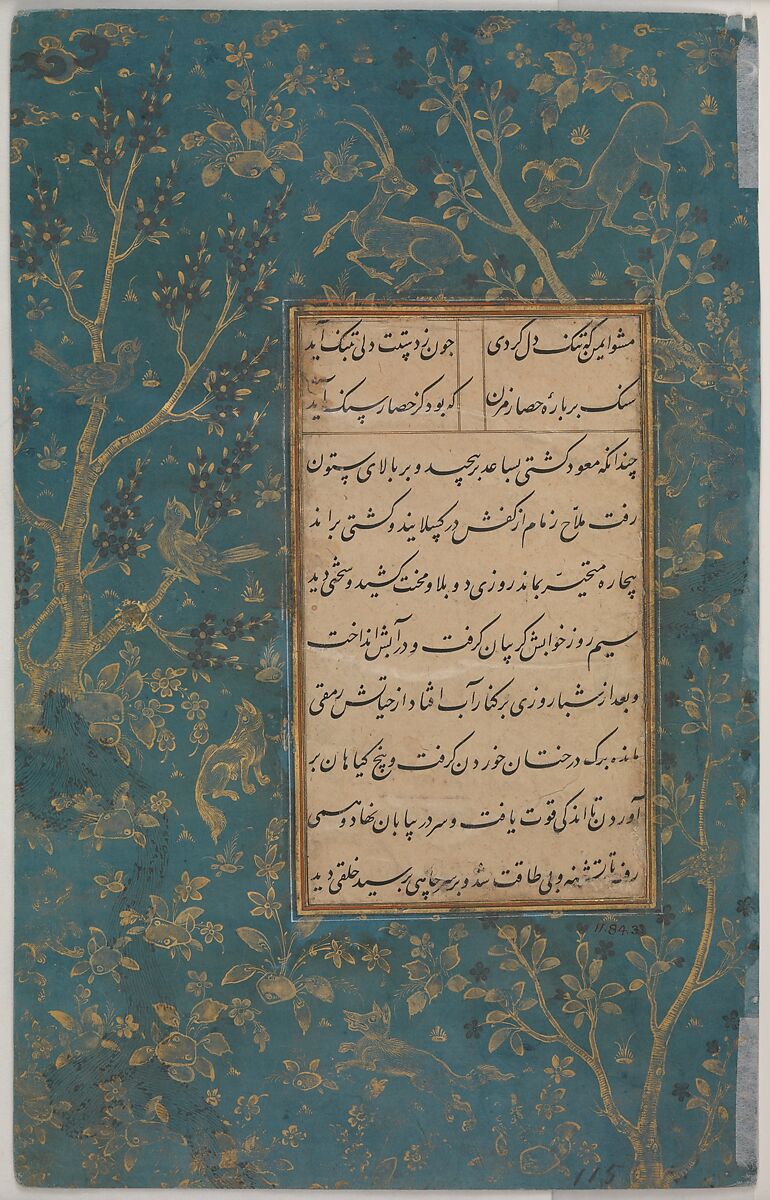 مشو ایمن که تنک دل کردی چون ز دستت دلی بتنک آید
سنک بر بارهٔ حصار مزن که بود کز حصار سنک آید
چندانکه معود کشتی بساعد برپیچید و بر بالای ستون
رفت ملاح زمام از کفش در کسلانید و کشتی براند
بیچاره متحیر بماند روزی دو بلا و محنت کشید و سختی دید
سیم روز خوابش کریبان کرفت و در آبش انداخت
و بعد از شباروزی بر کنار آب افتاد از حیاتش رمقی
مانده برک درختان خوردن کرفت و بیخ کیاهان بر
آوردن تا اندکی قوت یافت و سر در بیابان نهاد و همی
رفت تا تشنه و بی طاقت شد و بر سر چاهی برسید خلقی دید
11.84.3
115